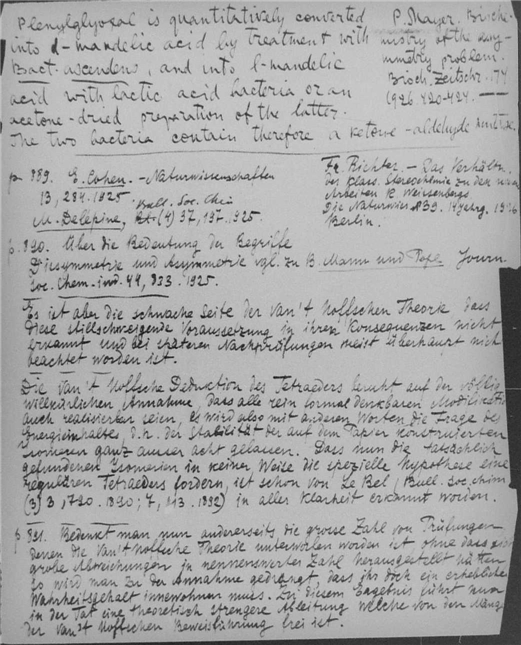 Phenylglyoxal is quantitatively converted
into d-mandelic acid by treatment with
Bact. ascendens, and into l-mandelic
acid with lactic acid bacteria or an
acetone-dried preparation of the latter.
The two bacteria contain therefore a ketone-aldehyde mutase.
P. Mayer. Bioche-
mistry of the asy-
mmetry problem.
Bioch. Zeitschr. 174
1926 420-424.
p. 889. E. Cohen. - Naturwissenschaften
13, 284. 1925.
Bull. Soc. Chim
M. Delepine, (4) 37, 197. 1925.
Fr. Richter - Das Verhältn.
der klass. Stereochemie zu den neuen
Arbeiten K. Weissenbergs
Die Naturwiss. 14 Jahrg. 1926
Berlin.
p. 890. Über die Bedeutung der Begriffe
Dissymmetrie und Asymmetrie vgl. zu B. Mann und Pope Journ.
Soc. Chem. ind. 44, 833. 1925.
Es ist aber die schwache Seite der Van't Hoffschen Theorie, dass
diese stillschweigende Voraussetzung in ihren Konsequenzen nicht
erkannt und bei späteren Nachprüfungen meist überhaupt nicht
beachtet worden ist.
Die Van't Hoffsche Deduktion des Tetraeders beruht auf der völlig
willkürlichen Annahme, dass alle rein formal denkbaren
auch realisierbar seien, es wird also mit anderen Worten die Frage des
Energieinhaltes, d.h. der Stabilität der auf dem Papier konstruierten
Isomeren ganz ausser acht gelassen. Dass nun die tatsächlich
gefundenen Isomerien in keiner Weise die spezielle Hypothese eines
regulären Tetraeders fordern, ist schon von Le Bel, (Bull. soc. chim
(3) 3, 790. 1890; 7, 1892) in aller Klarheit erkannt worden.
p. 891. Bedenkt man nun andererseits die grosse Zahl von Prüfungen
denen die Van't Hoffsche Theorie unterworfen worden ist ohne dass sich
grobe Abweichungen in nennenswerter Zahl herausgestellt hätten
so wird man zu der Annahme gedrängt, dass ihr doch ein erheblicher
Wahrheitsgehalt innewohnen muss. Zu diesem Ergebnis führt nun
in der Tat eine theoretisch strengere Ableitung welche von den
der Van't Hoffschen Beweisführung frei ist.